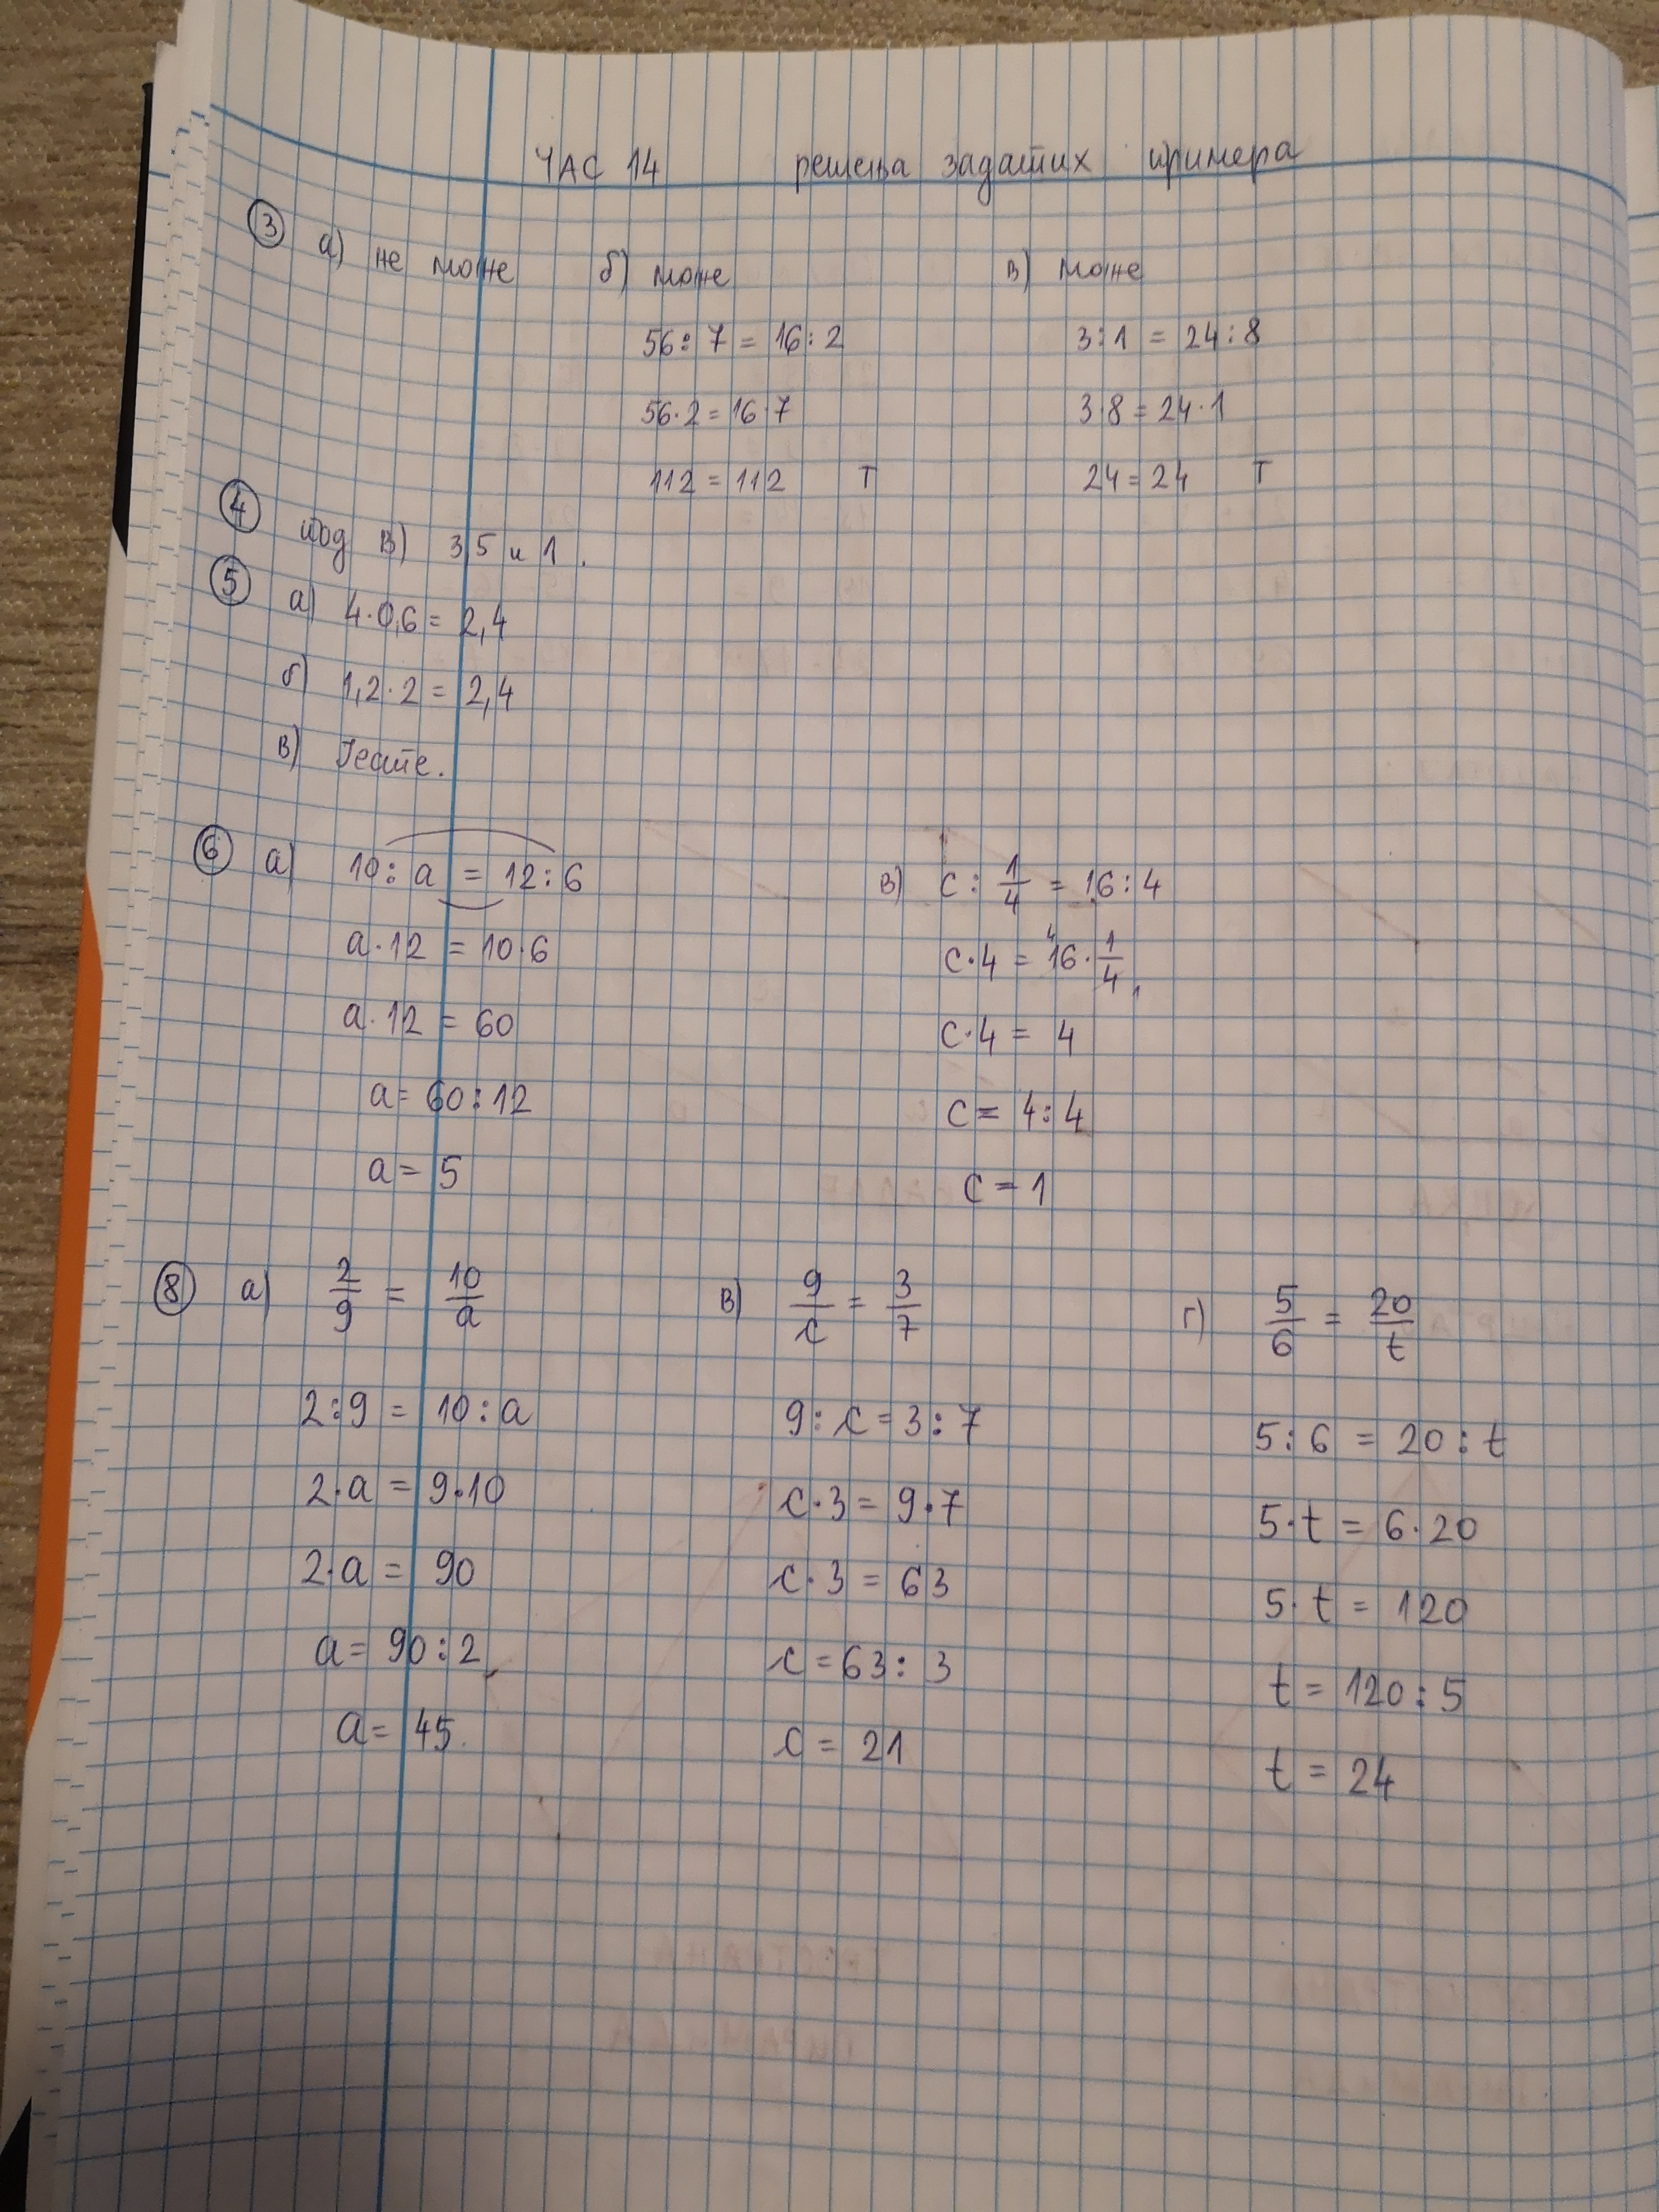 ЧАС 14 решења задатих примера
③ а) не може б) може в) може
56:7 = 16:2 3:1 = 24:8
56·2 = 16·7 3·8 = 24·1
112 = 112 Т 24 = 24 Т
④ код в) 35 и 1.
⑤ а) 4·0,6 = 2,4
б) 1,2·2 = 2,4
в) Јесте.
⑥ а) 10:a = 12:6 в) c: 1/4 = 16:4
a·12 = 10·6 c·4 = 16·1/4 4 1
a·12 = 60 c·4 = 4
a = 60:12 c = 4:4
a = 5 c = 1
⑧ а) 2/9 = 10/a в) 9/c = 3/7 г) 5/6 = 20/t
2:9 = 10:a 9:c = 3:7 5:6 = 20:t
2·a = 9·10 c·3 = 9·7 5·t = 6·20
2·a = 90 c·3 = 63 5·t = 120
a = 90:2 c = 63:3 t = 120:5
a = 45 c = 21 t = 24